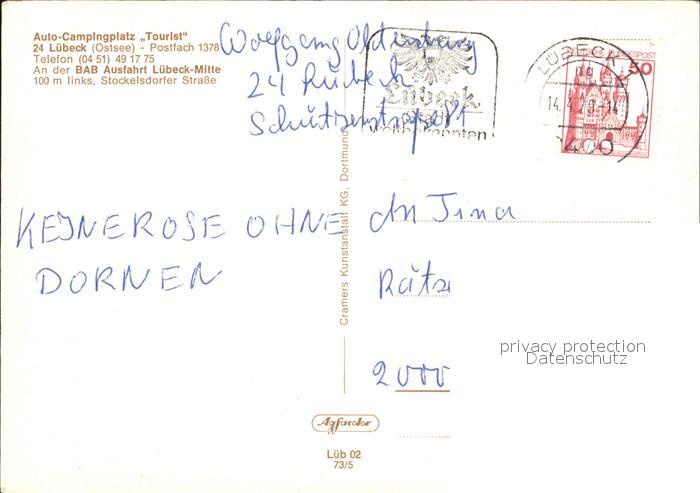 Auto-Campingplatz „Tourist"
24 Lübeck (Ostsee) - Postfach 1378
Telefon (04 51) 49 17 75
An der BAB Ausfahrt Lübeck-Mitte
100 m links, Stockelsdorfer Straße
Wolfgang Oldenburg
24 Lübeck
Lübeck
Stadt
LÜBECK
14.4.
2400
BUNDESPOST
50
KEINE ROSE OHNE
DORNEN
Cramers Kunstanstalt KG, Dortmund
An Tina
2000
privacy protection
Datenschutz
Agfacolor
Lüb 02
73/5